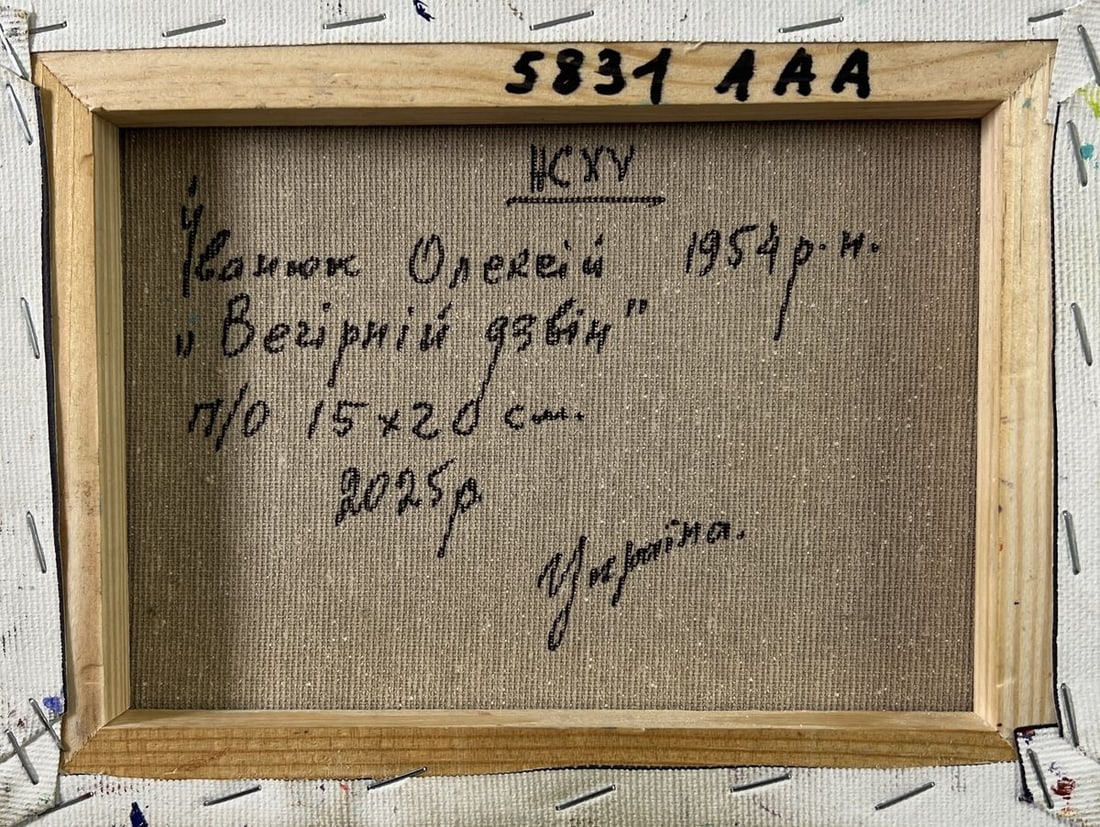 5831 1AA
НСХУ
Іванюк Олексій 1954р.н.
„Вечірній дзвін"
п/о 15х20 см.
2025р
Україна.